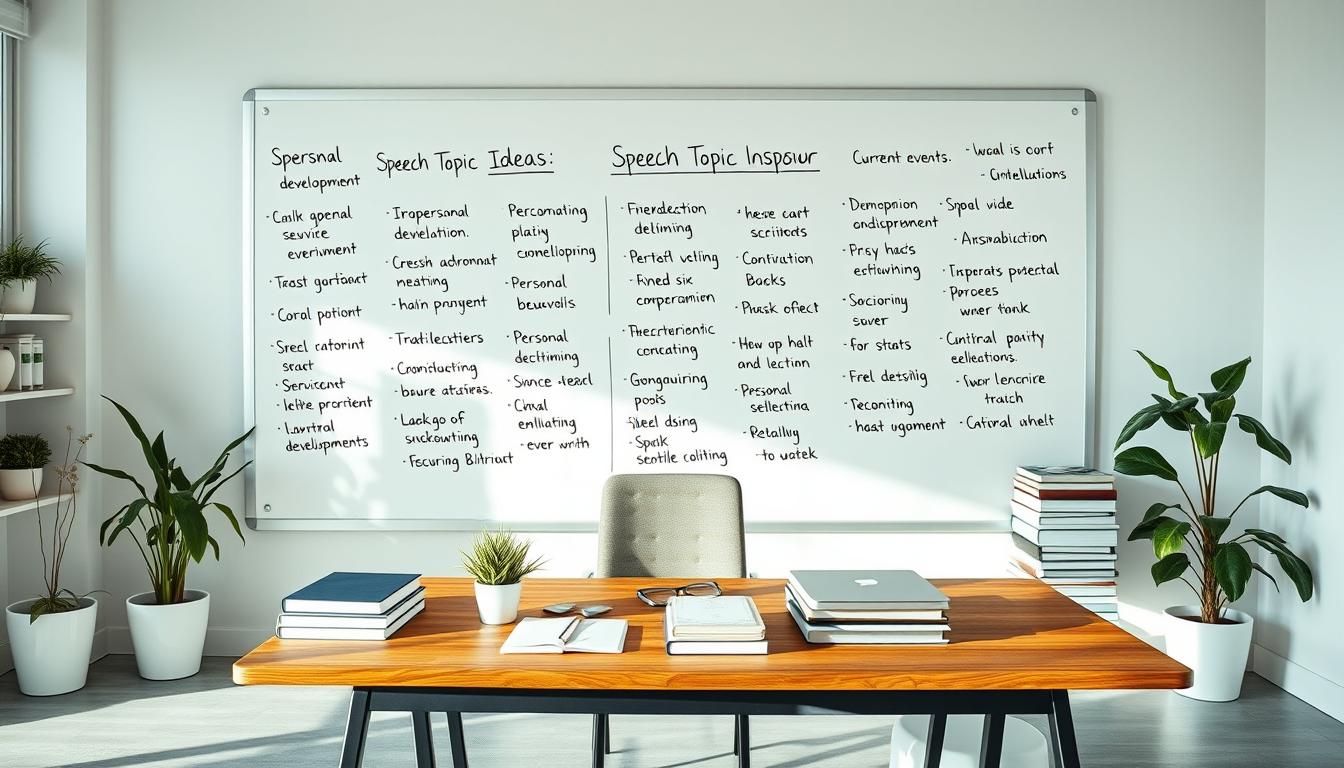 Spersnal
development
Speech Topic Ideas:
Speech Topic Inspour
Current events.
- Wcal is cort
- Cintellutions
- Calk gpenal
sevvice
everivment
- Trast gartioact
- Coral potiont
- Srecl catorint
sract
- Servicent
- Icl te prortient
- Lavvtral
devellspments
- Iropersonal
develation.
- Cressh adronnat
neating
- hain pmyent
- Tratilcstiers
- Conrolucting
- boure atsires.
- Lackgo of
snckowting
- Fscuring Blitriact
- Percomating
platiy
cionellopring
- Personal
beuevolls
- Personal
decltiming
- Sinnce tead
- Chval
enlliating
- ever wnth
- Frierdection
deliming
- Pertofl velling
- Fived six
cmperamien
- Thecrterientic
concating
- Gongauiring
pools
- Sleel dsing
- Spnk
scntile coliting
- hese cart
scriitocts
- Contivation
Backs
- Phask ofiect
- How op halt
and lection
- Pesonal
sellectina
- Retalliy
- to vatek
- Demopnion
ondicprement
- Prsy hacls
estliwining
- Socioring
sover
- for stats
- Frel detsilig
- Teconiting
- host ugoment
- Spoal vide
- Arsnabiction
- Tnperats potectal
- Porcees
wner tonk
- Cintitral parity
eelleations.
- Iwor lencrire
traich
- Catoral whelt